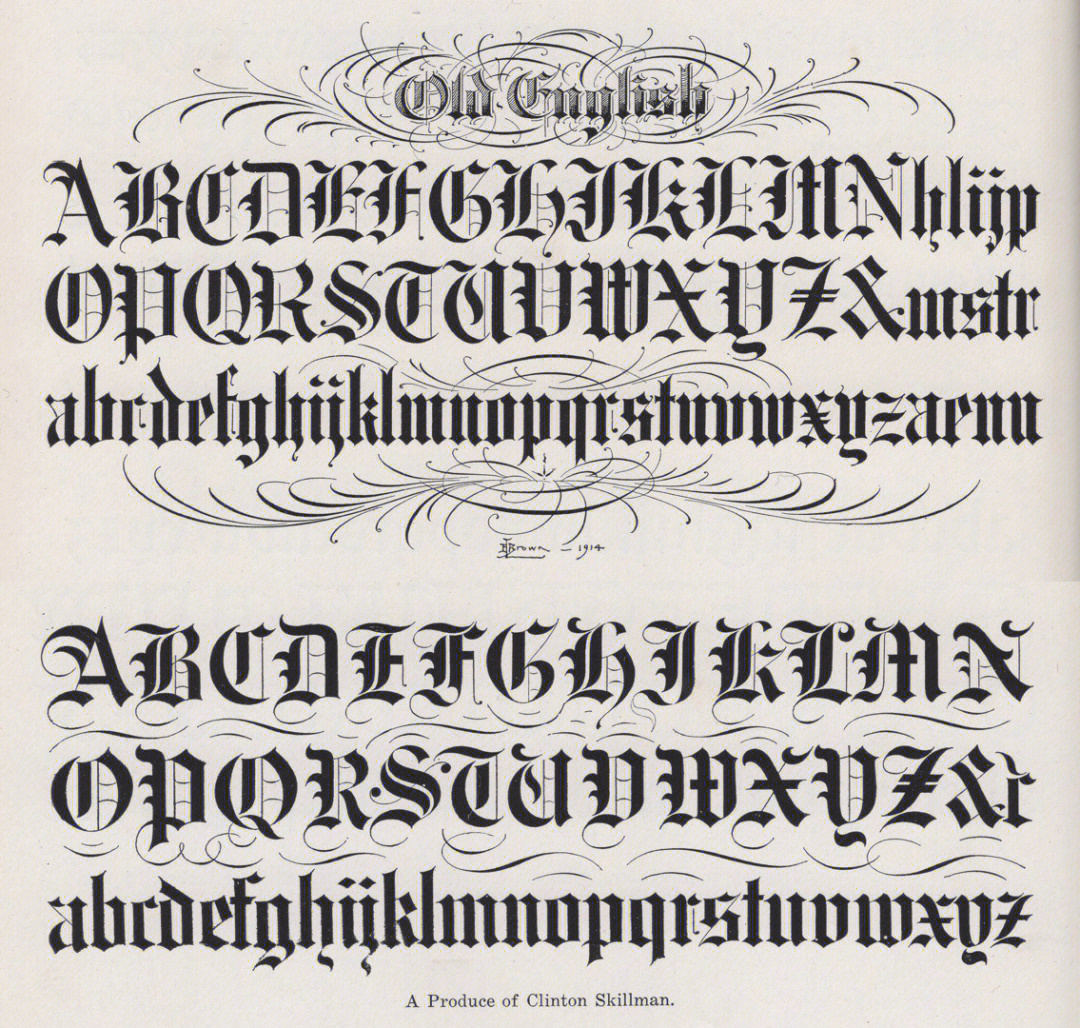 Old English
ABCDEFGHIJKLMNhlijp
OPQRSTUVWXYZ&mstr
abcdefghijklmnopqrstuvwxyzaenu
EBrown – 1914
ABCDEFGHIJKLMN
OPQRSTUVWXYZ&r
abcdefghijklmnopqrstuvwxyz
A Produce of Clinton Skillman.